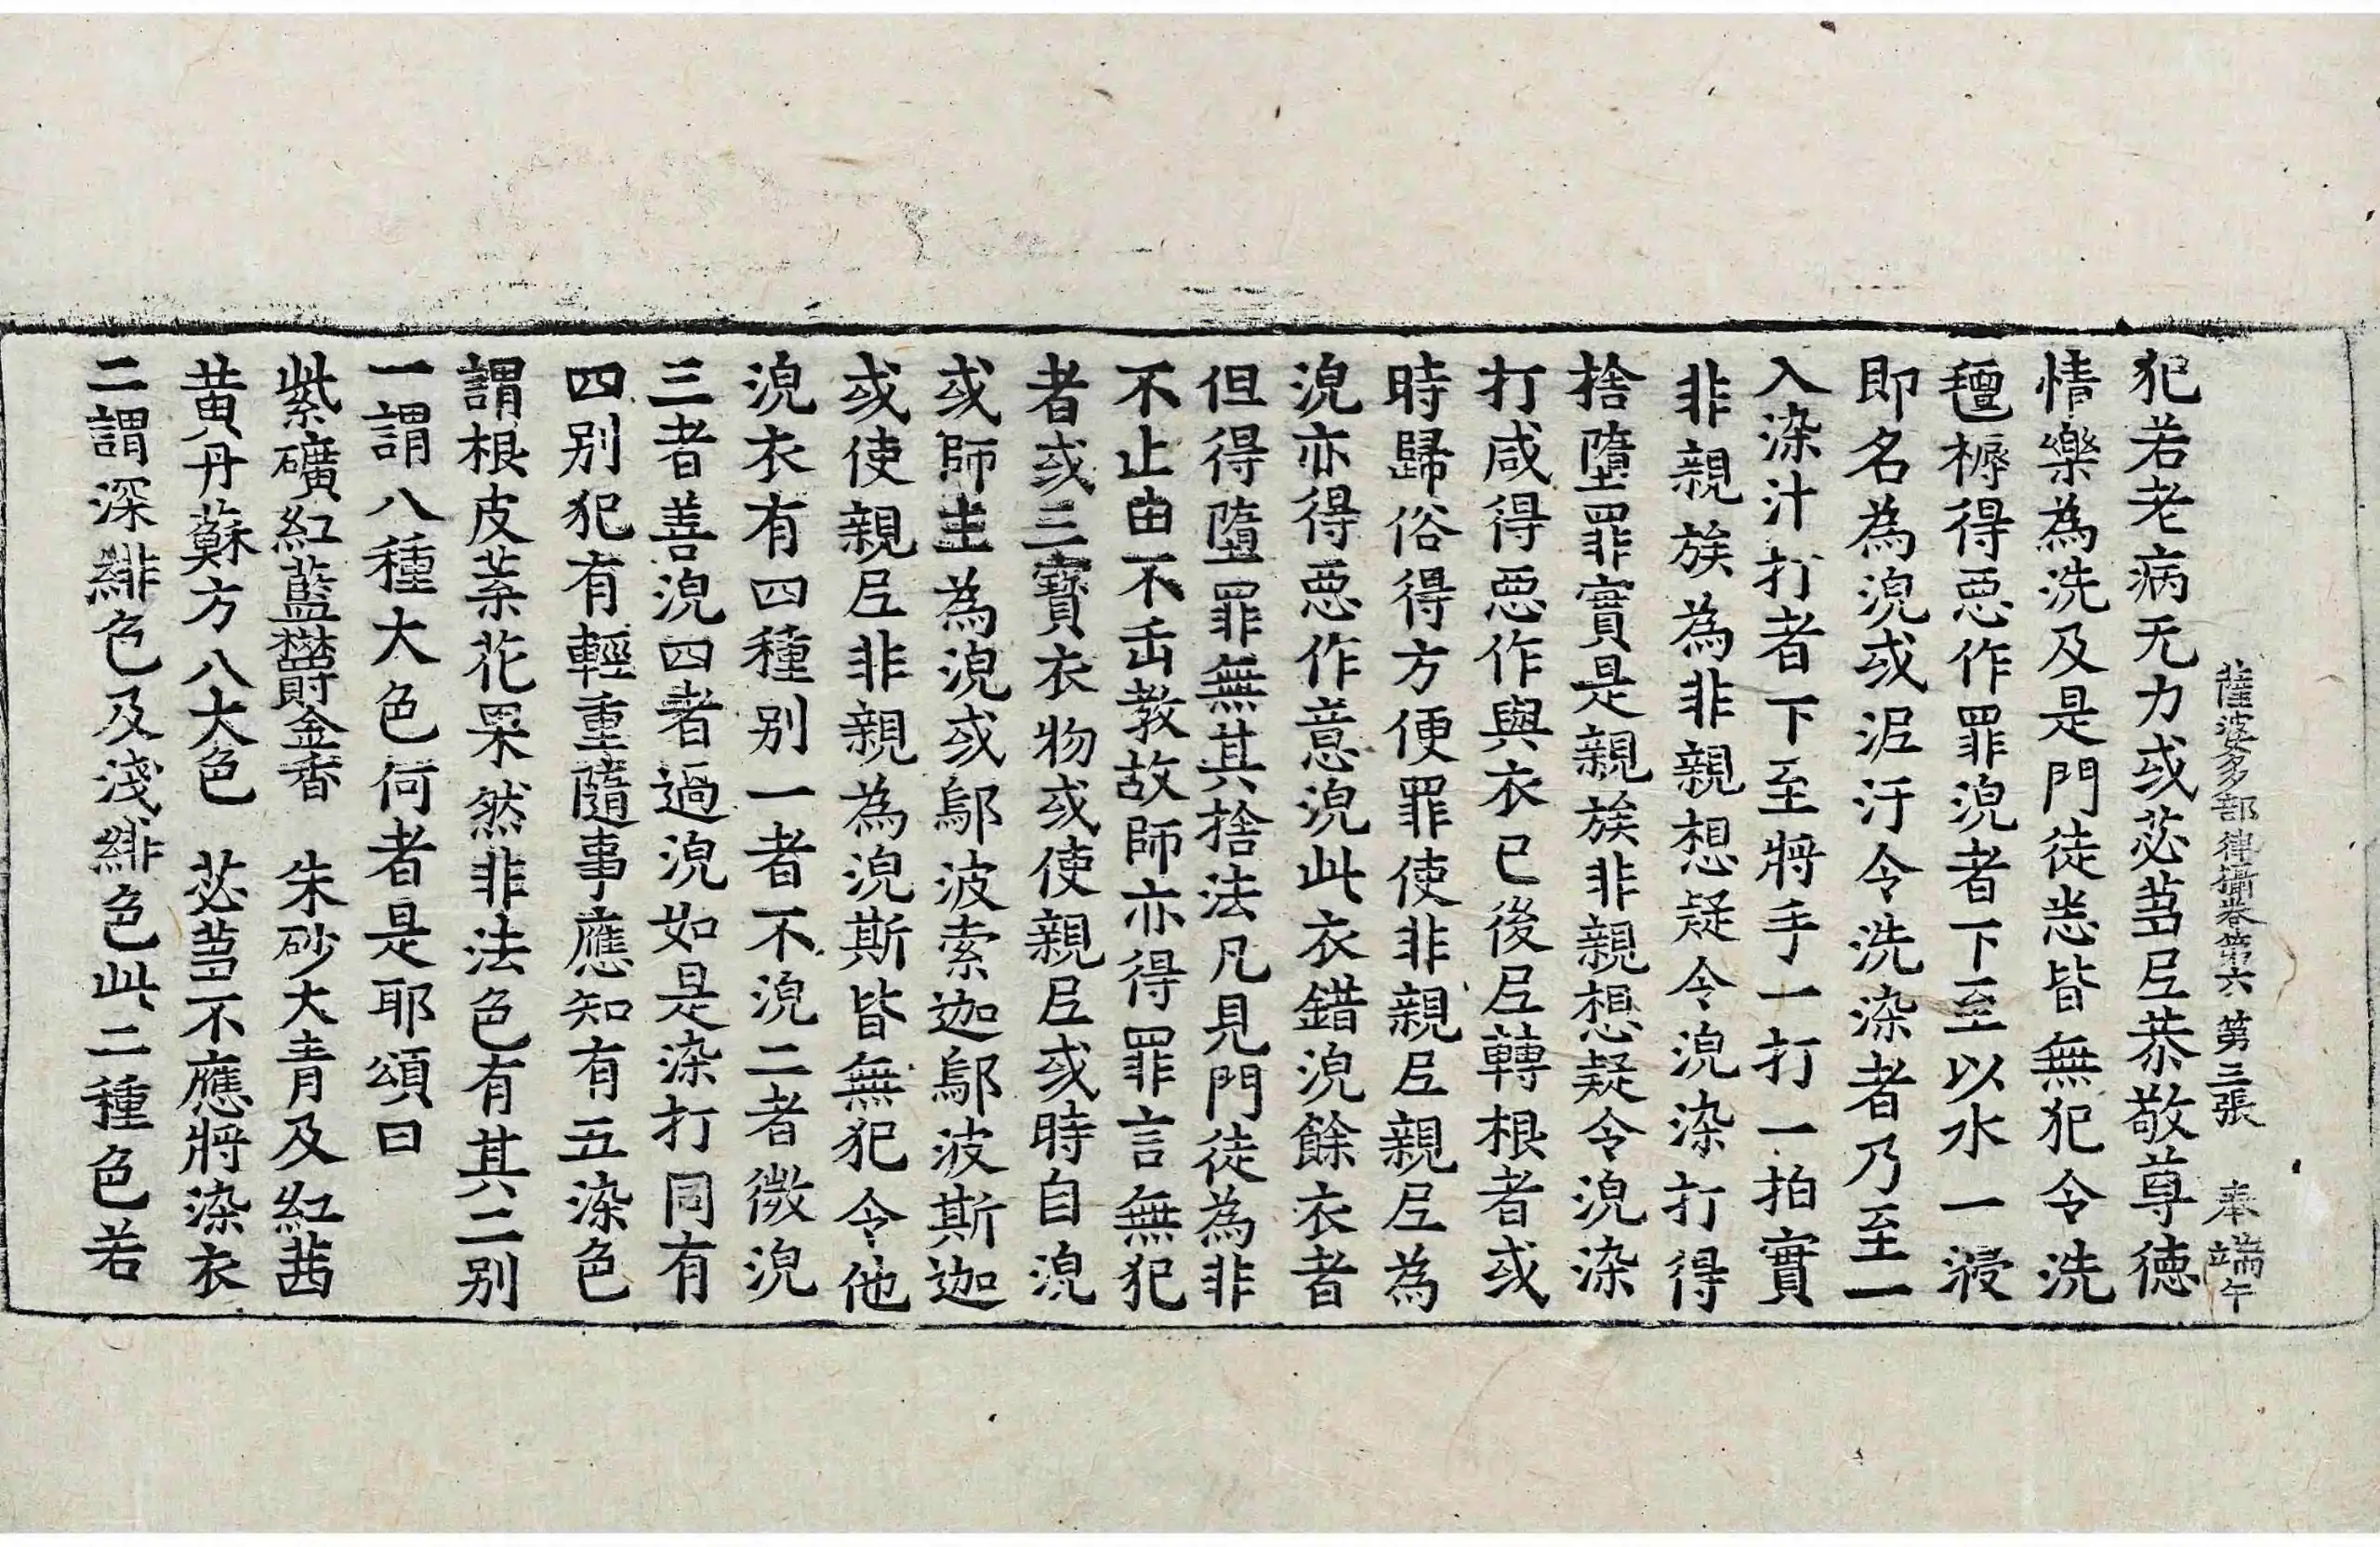 薩婆多部律攝卷第六 第三張 奉 端午
犯若老病无力或苾蒭尼恭敬尊德
情樂為洗及是門徒悉皆無犯令洗
氊褥得惡作罪浣者下至以水一浸
即名為浣或泥汙令洗染者乃至一
入染汁打者下至將手一打一拍實
非親族為非親想疑令浣染打得
捨墮罪實是親族非親想疑令浣染
打咸得惡作與衣已後尼轉根者或
時歸俗得方便罪使非親尼親尼為
浣亦得惡作意浣此衣錯浣餘衣者
但得墮罪無其捨法凡見門徒為非
不止由不缶教故師亦得罪言無犯
者或三寶衣物或使親尼或時自浣
或師主為浣或鄔波索迦鄔波斯迦
或使親尼非親為浣斯皆無犯令他
浣衣有四種別一者不浣二者微浣
三者善浣四者過浣如是染打同有
四別犯有輕重隨事應知有五染色
謂根皮葉花果然非法色有其二別
一謂八種大色何者是耶頌曰
紫礦紅藍欝金香 朱砂大青及紅茜
黃丹蘇方八大色 苾蒭不應將染衣
二謂深緋色及淺緋色此二種色若